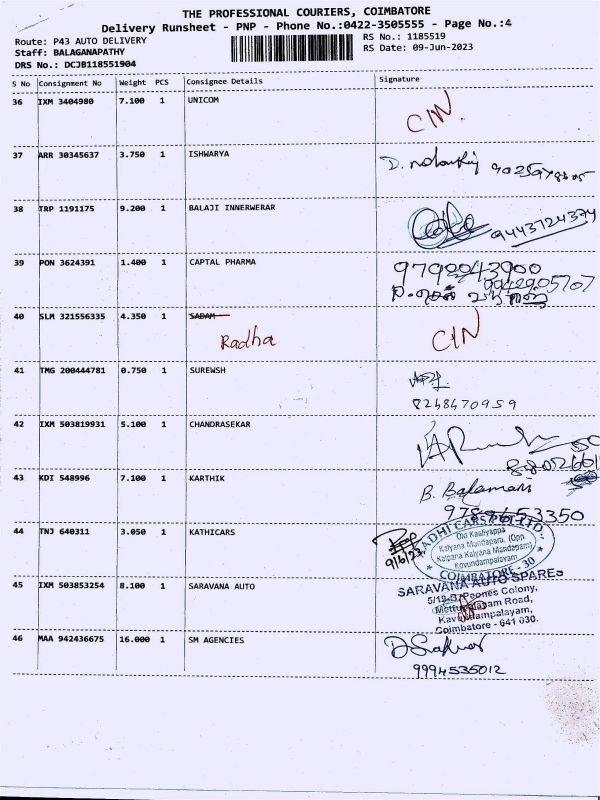 THE PROFESSIONAL COURIERS, COIMBATORE
Delivery Runsheet - PNP - Phone No.:0422-3505555 - Page No.:4
Route: P43 AUTO DELIVERY RS No.: 1185519
Staff: BALAGANAPATHY RS Date: 09-Jun-2023
DRS No.: DCJB118551904
S No Consignment No Weight PCS Consignee Details Signature
36 IXM 3404980 7.100 1 UNICOM
37 ARR 30345637 3.750 1 ISHWARYA
38 TRP 1191175 9.200 1 BALAJI INNERWERAR 9443724374
39 PON 3624391 1.400 1 CAPTAL PHARMA
40 SLM 321556335 4.350 1 SADAM
Radha
41 TMG 200444781 0.750 1 SUREWSH
8248470959
42 IXM 503819931 5.100 1 CHANDRASEKAR
43 KDI 548996 7.100 1 KARTHIK B. Balamani
44 TNJ 640311 3.050 1 KATHICARS 9/6/23
Old Kaaliyappa
Kalyana Mandapam, (Opp.
Kalpana Kalyana Mandapam)
Kovundampalayam
COIMBATORE - 30
45 IXM 503853254 8.100 1 SARAVANA AUTO SARAVANA AUTO SPARES
Colony,
Road,
Coimbatore - 641 030.
46 MAA 942436675 16.000 1 SM AGENCIES
9994535012